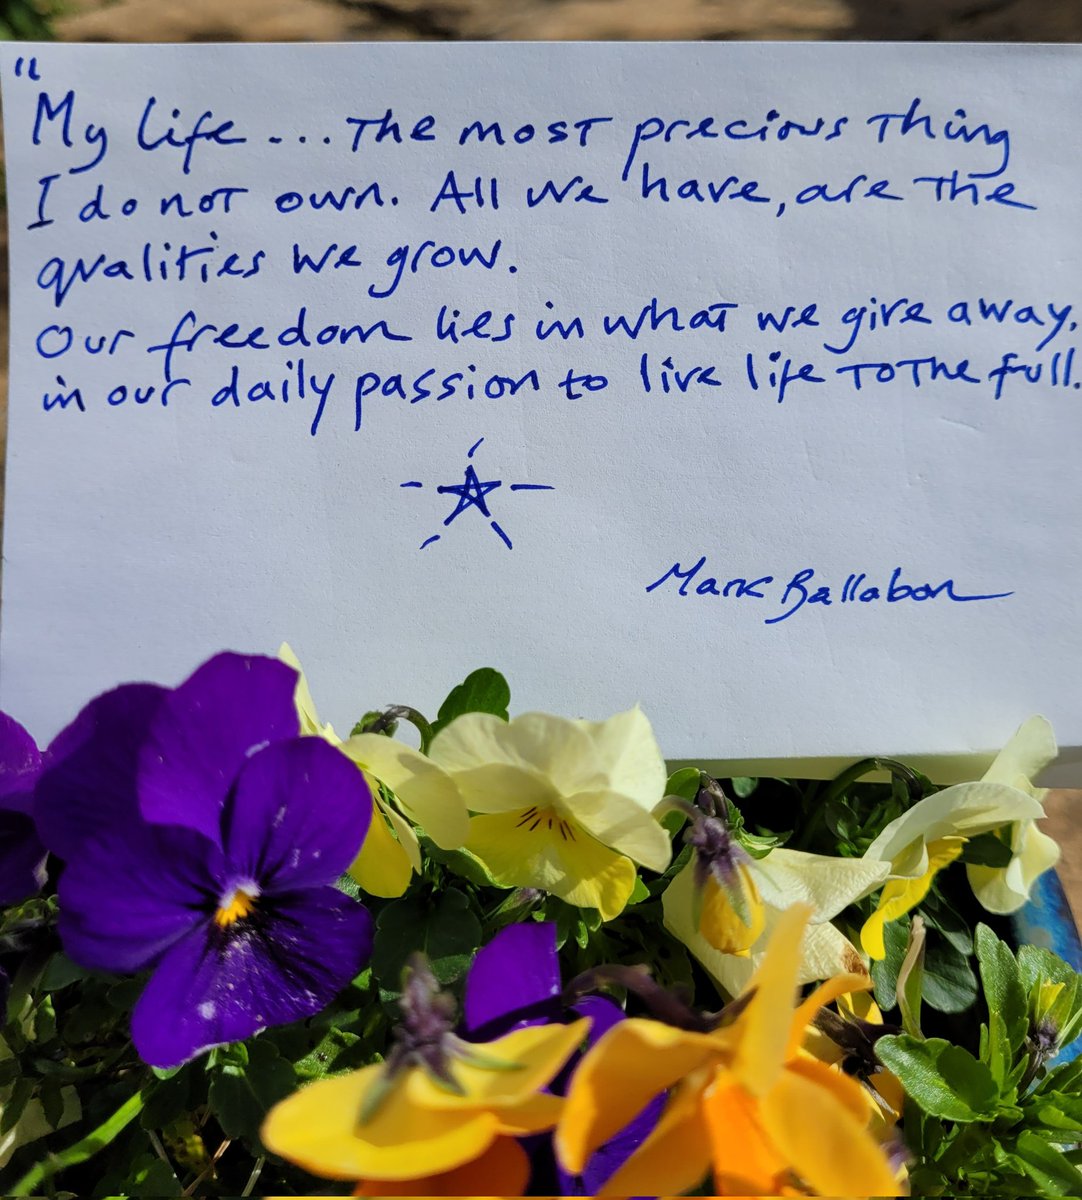 "
My life ... The most precious Thing
I do not own. All we have, are The
qualities we grow.
Our freedom lies in what we give away,
in our daily passion to live life To The full.
Mark Ballabon